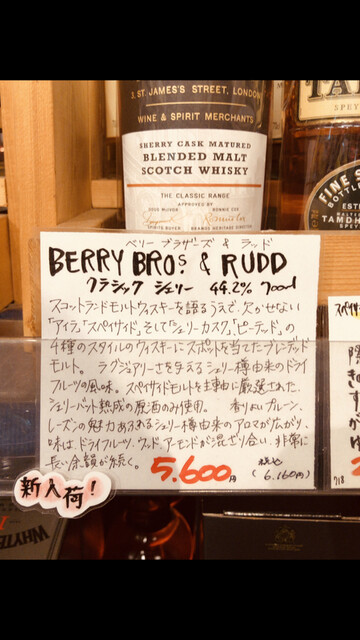 3, ST. JAMES'S STREET, LONDON
WINE & SPIRIT MERCHANTS
SHERRY CASK MATURED
BLENDED MALT
SCOTCH WHISKY
THE CLASSIC RANGE
APPROVED BY
SPIRITS BUYER
FINE S
TAMDH
SPEY
ベリー ブラザーズ & ラッド
BERRY BROS & RUDD
クラシック シェリー 44.2% 700ml
スコットランドモルトウィスキーを語るうえで、欠かせない
「アイラ」「スペイサイド」、そして「シェリーカスク」、「ピーテッド」の
4種のスタイルのウィスキーにスポットを当てたブレンデッド
モルト。ラグジュアリーさを与えるシェリー樽由来のドライ
フルーツの風味。スペイサイドモルトを主軸に厳選された、
シェリーバット熟成の原酒のみ使用。 香りはプルーン、
レーズンの魅力あふれるシェリー樽由来のアロマが広がり、
味は、ドライフルーツ、ウッド、アーモンドが混ざり合い、非常に
長い余韻が続く。 5.600円 税込 (6.160円)
新入荷!
WHYTE
スペイサイ
7/8